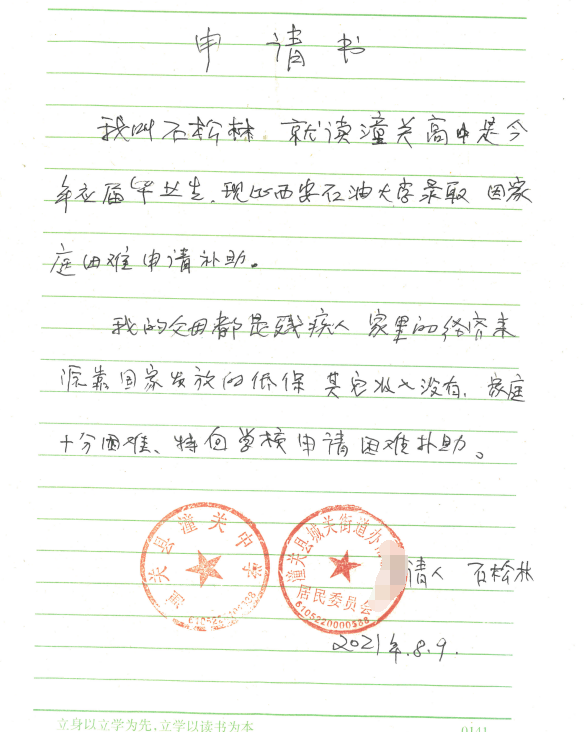 申请书
我叫石松林.就读潼关高中是今
年应届毕业生.现已西安石油大学录取 因家
庭困难申请补助。
我的父母都是残疾人 家里的经济来
源靠国家发放的低保 其它收入没有.家庭
十分困难、特向学校申请困难补助。
潼关县潼关中学
潼关县城关街道办
居民委员会
6105220000588
请人 石松林
2021年.8.9.
立身以立学为先,立学以读书为本